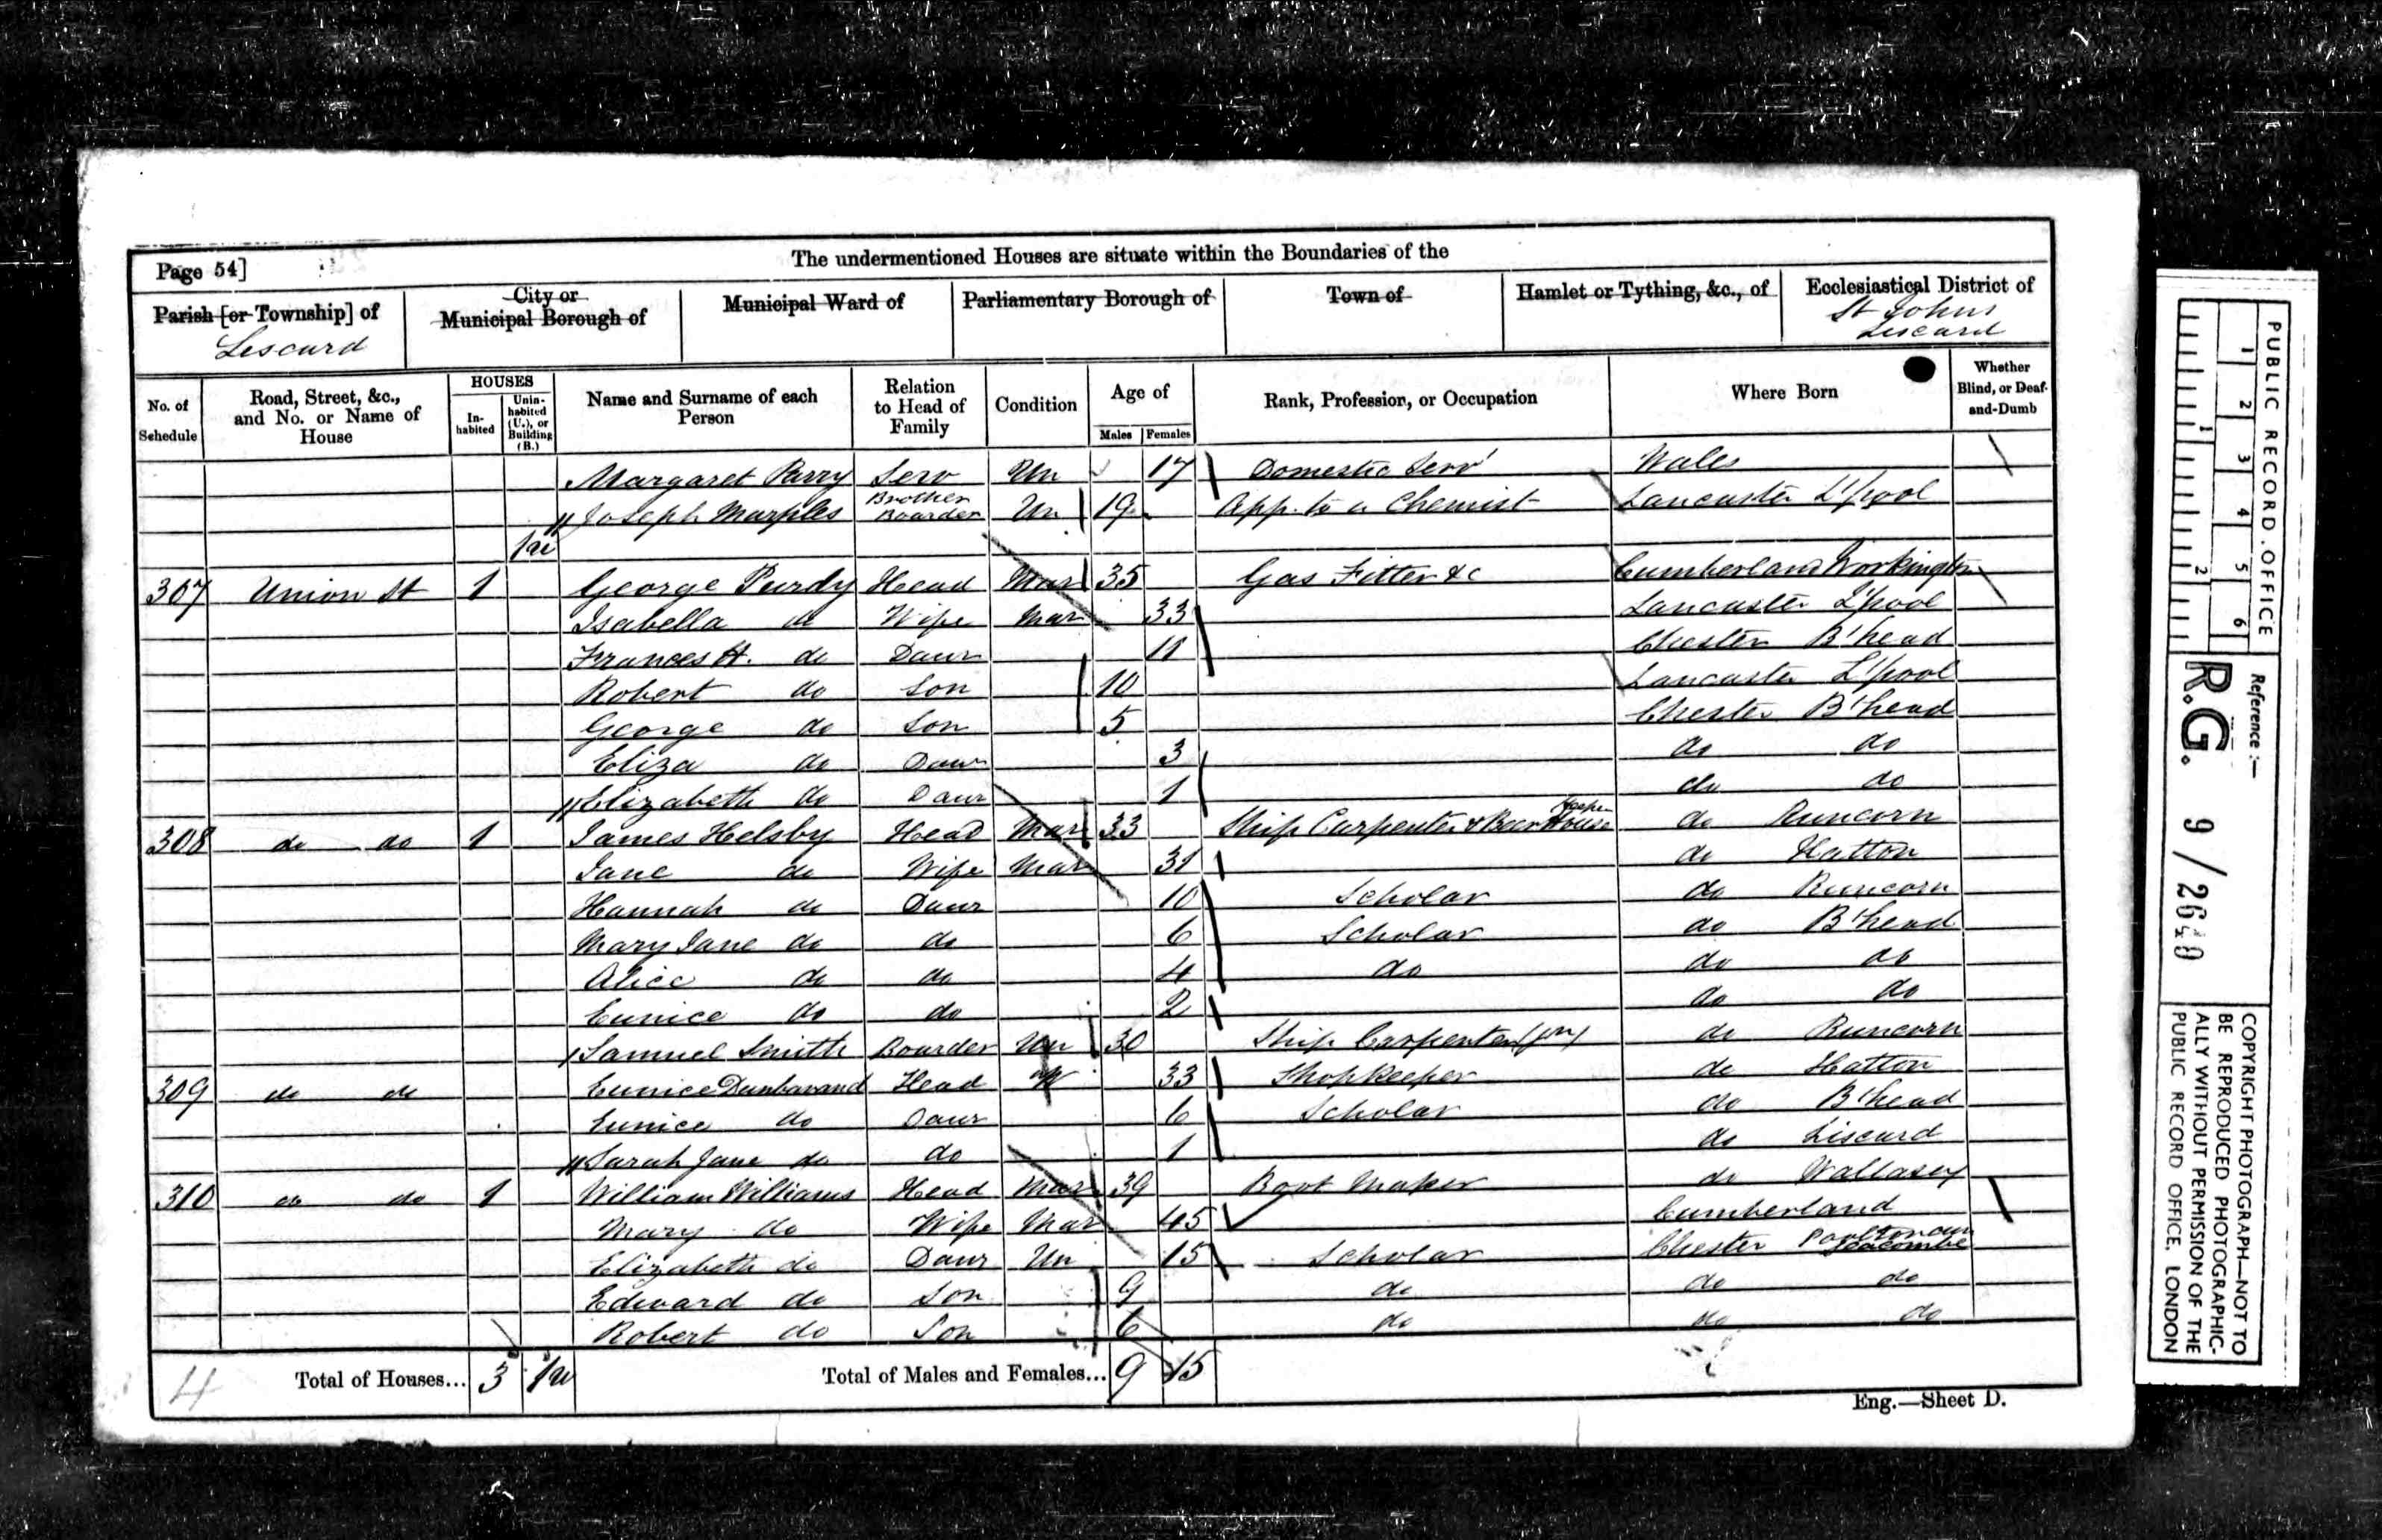 Page 54]
The undermentioned Houses are situate within the Boundaries of the
Parish [or Township] of
Liscard
City or
Municipal Borough of
Municipal Ward of
Parliamentary Borough of
Town of
Hamlet or Tything, &c., of
Ecclesiastical District of
St Johns
Liscard
No. of Schedule
Road, Street, &c., and No. or Name of House
HOUSES
In-habited
Unin-habited (U.), or Building (B.)
Name and Surname of each Person
Relation to Head of Family
Condition
Age of
Males
Females
Rank, Profession, or Occupation
Where Born
Whether Blind, or Deaf-and-Dumb
Margaret Parry Serv Un 17 Domestic Serv Wales
Joseph Marples Brother Boarder Un 19 App. to a Chemist Lancaster L'pool
1u
307 Union St 1 George Purdy Head Mar 35 Gas Fitter &c Cumberland Workington
Isabella do Wife Mar 33 Lancaster L'pool
Frances H. do Daur 11 Chester B'head
Robert do Son 10 Lancaster L'pool
George do Son 5 Chester B'head
Eliza do Daur 3 do do
Elizabeth do Daur 1 do do
308 do do 1 James Helsby Head Mar 33 Ship Carpenter & Beerhouse Keeper do Runcorn
Jane do Wife Mar 31 do Hatton
Hannah do Daur 10 Scholar do Runcorn
Mary Jane do do 6 Scholar do B'head
Alice do do 4 do do do
Eunice do do 2 do do
Samuel Smith Boarder Un 30 Ship Carpenter do Runcorn
309 do do Eunice Dunbavand Head W 33 Shopkeeper do Hatton
Eunice do Daur 6 Scholar do B'head
Sarah Jane do do 1 do Liscard
310 do do 1 William Williams Head Mar 39 Boot Maker do Wallasey
Mary do Wife Mar 45 Cumberland
Elizabeth do Daur Un 15 Scholar Chester Poulton cum Seacombe
Edward do Son 9 do do do
Robert do Son 6 do do do
4 Total of Houses... 3 1u Total of Males and Females... 9 15
Eng.—Sheet D.
PUBLIC RECORD OFFICE
1 2 3 4 5 6
1 2
Reference :—
R.G. 9 / 2640
COPYRIGHT PHOTOGRAPH—NOT TO
BE REPRODUCED PHOTOGRAPHIC-
ALLY WITHOUT PERMISSION OF THE
PUBLIC RECORD OFFICE, LONDON